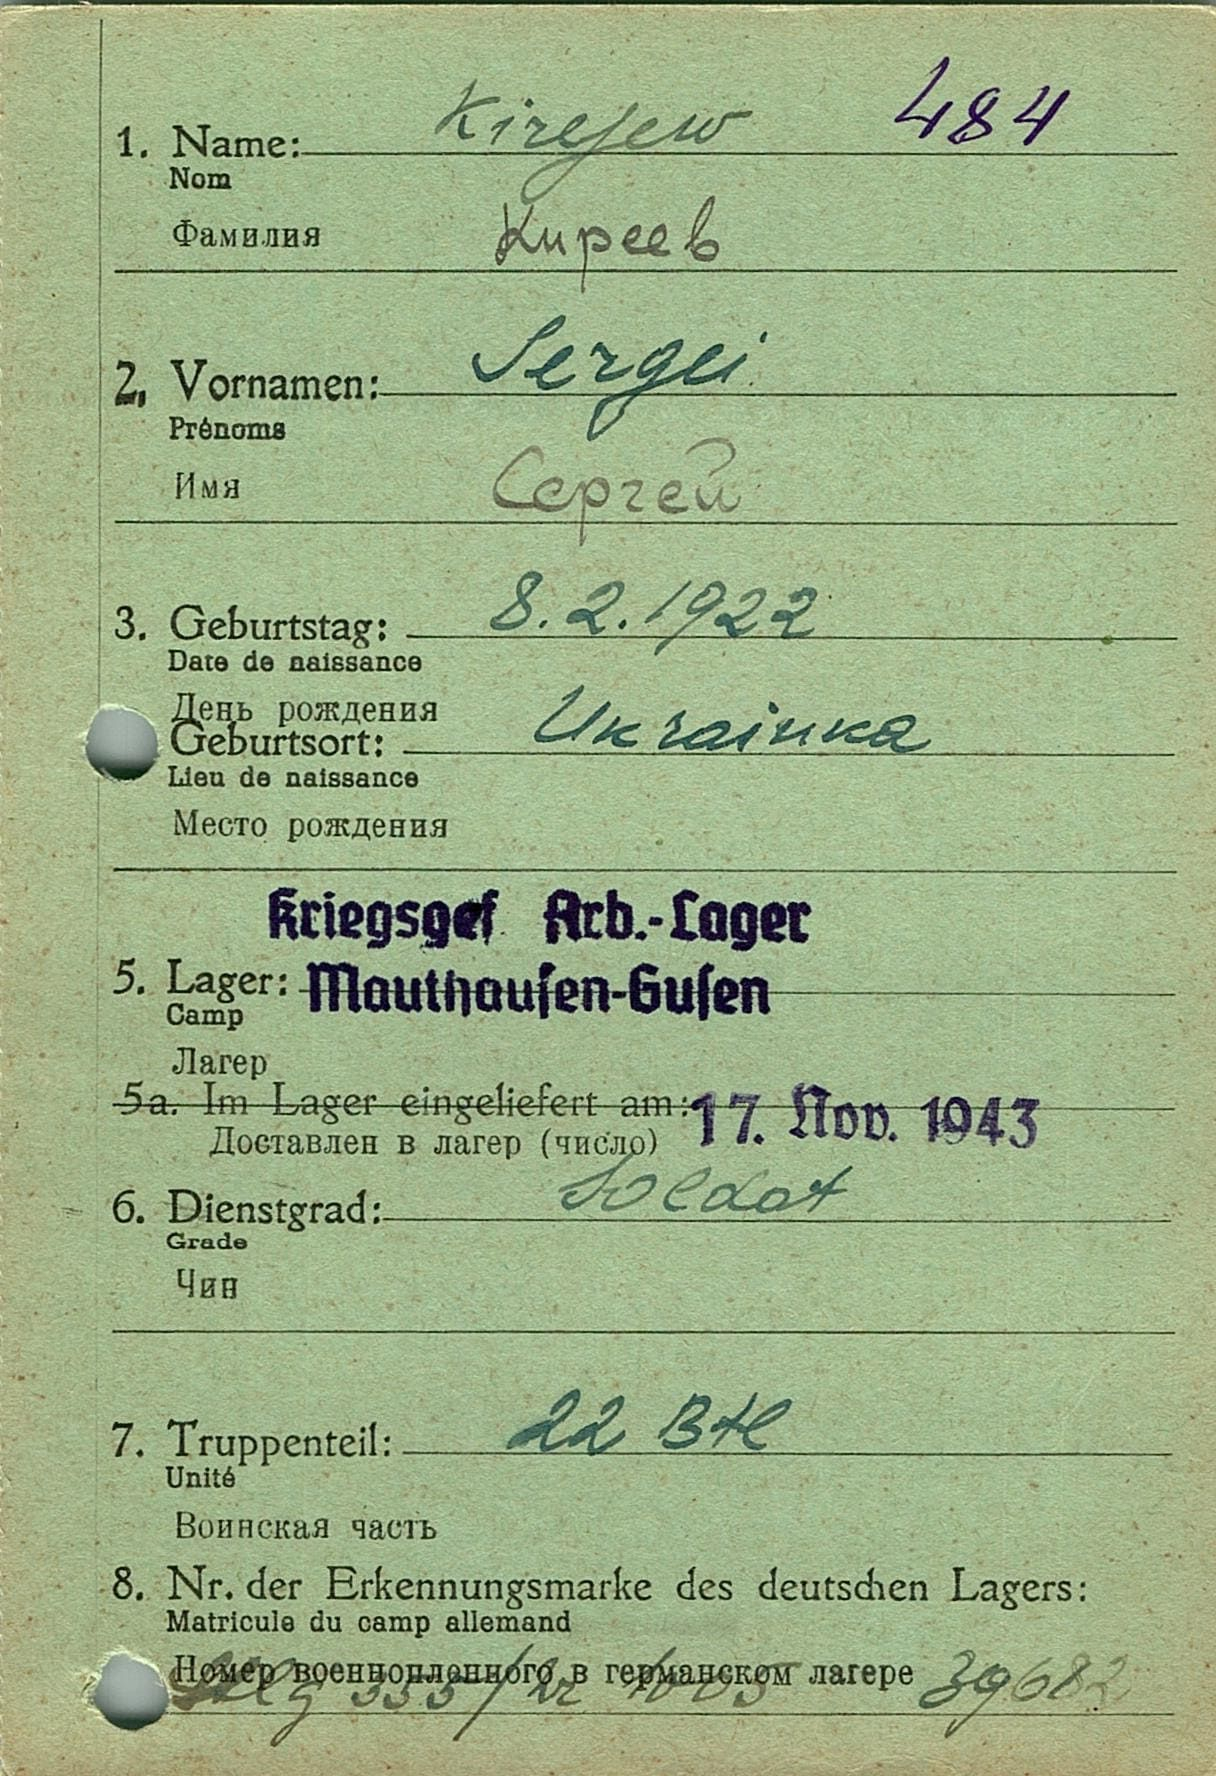 484
1. Name: Kirejew
Nom
Фамилия Киреев
2. Vornamen: Sergei
Prénoms
Имя Сергей
3. Geburtstag: 8.2.1922
Date de naissance
День рождения
Geburtsort: Ukrainka
Lieu de naissance
Место рождения
Kriegsgef. Arb.-Lager
5. Lager: Mauthausen-Gusen
Camp
Лагер
5a. Im Lager eingeliefert am: 17. Nov. 1943
Доставлен в лагер (число)
6. Dienstgrad: Soldat
Grade
Чин
7. Truppenteil: 22 Btl
Unité
Воинская часть
8. Nr. der Erkennungsmarke des deutschen Lagers:
Matricule du camp allemand
Номер военнопленного в германском лагере 39682